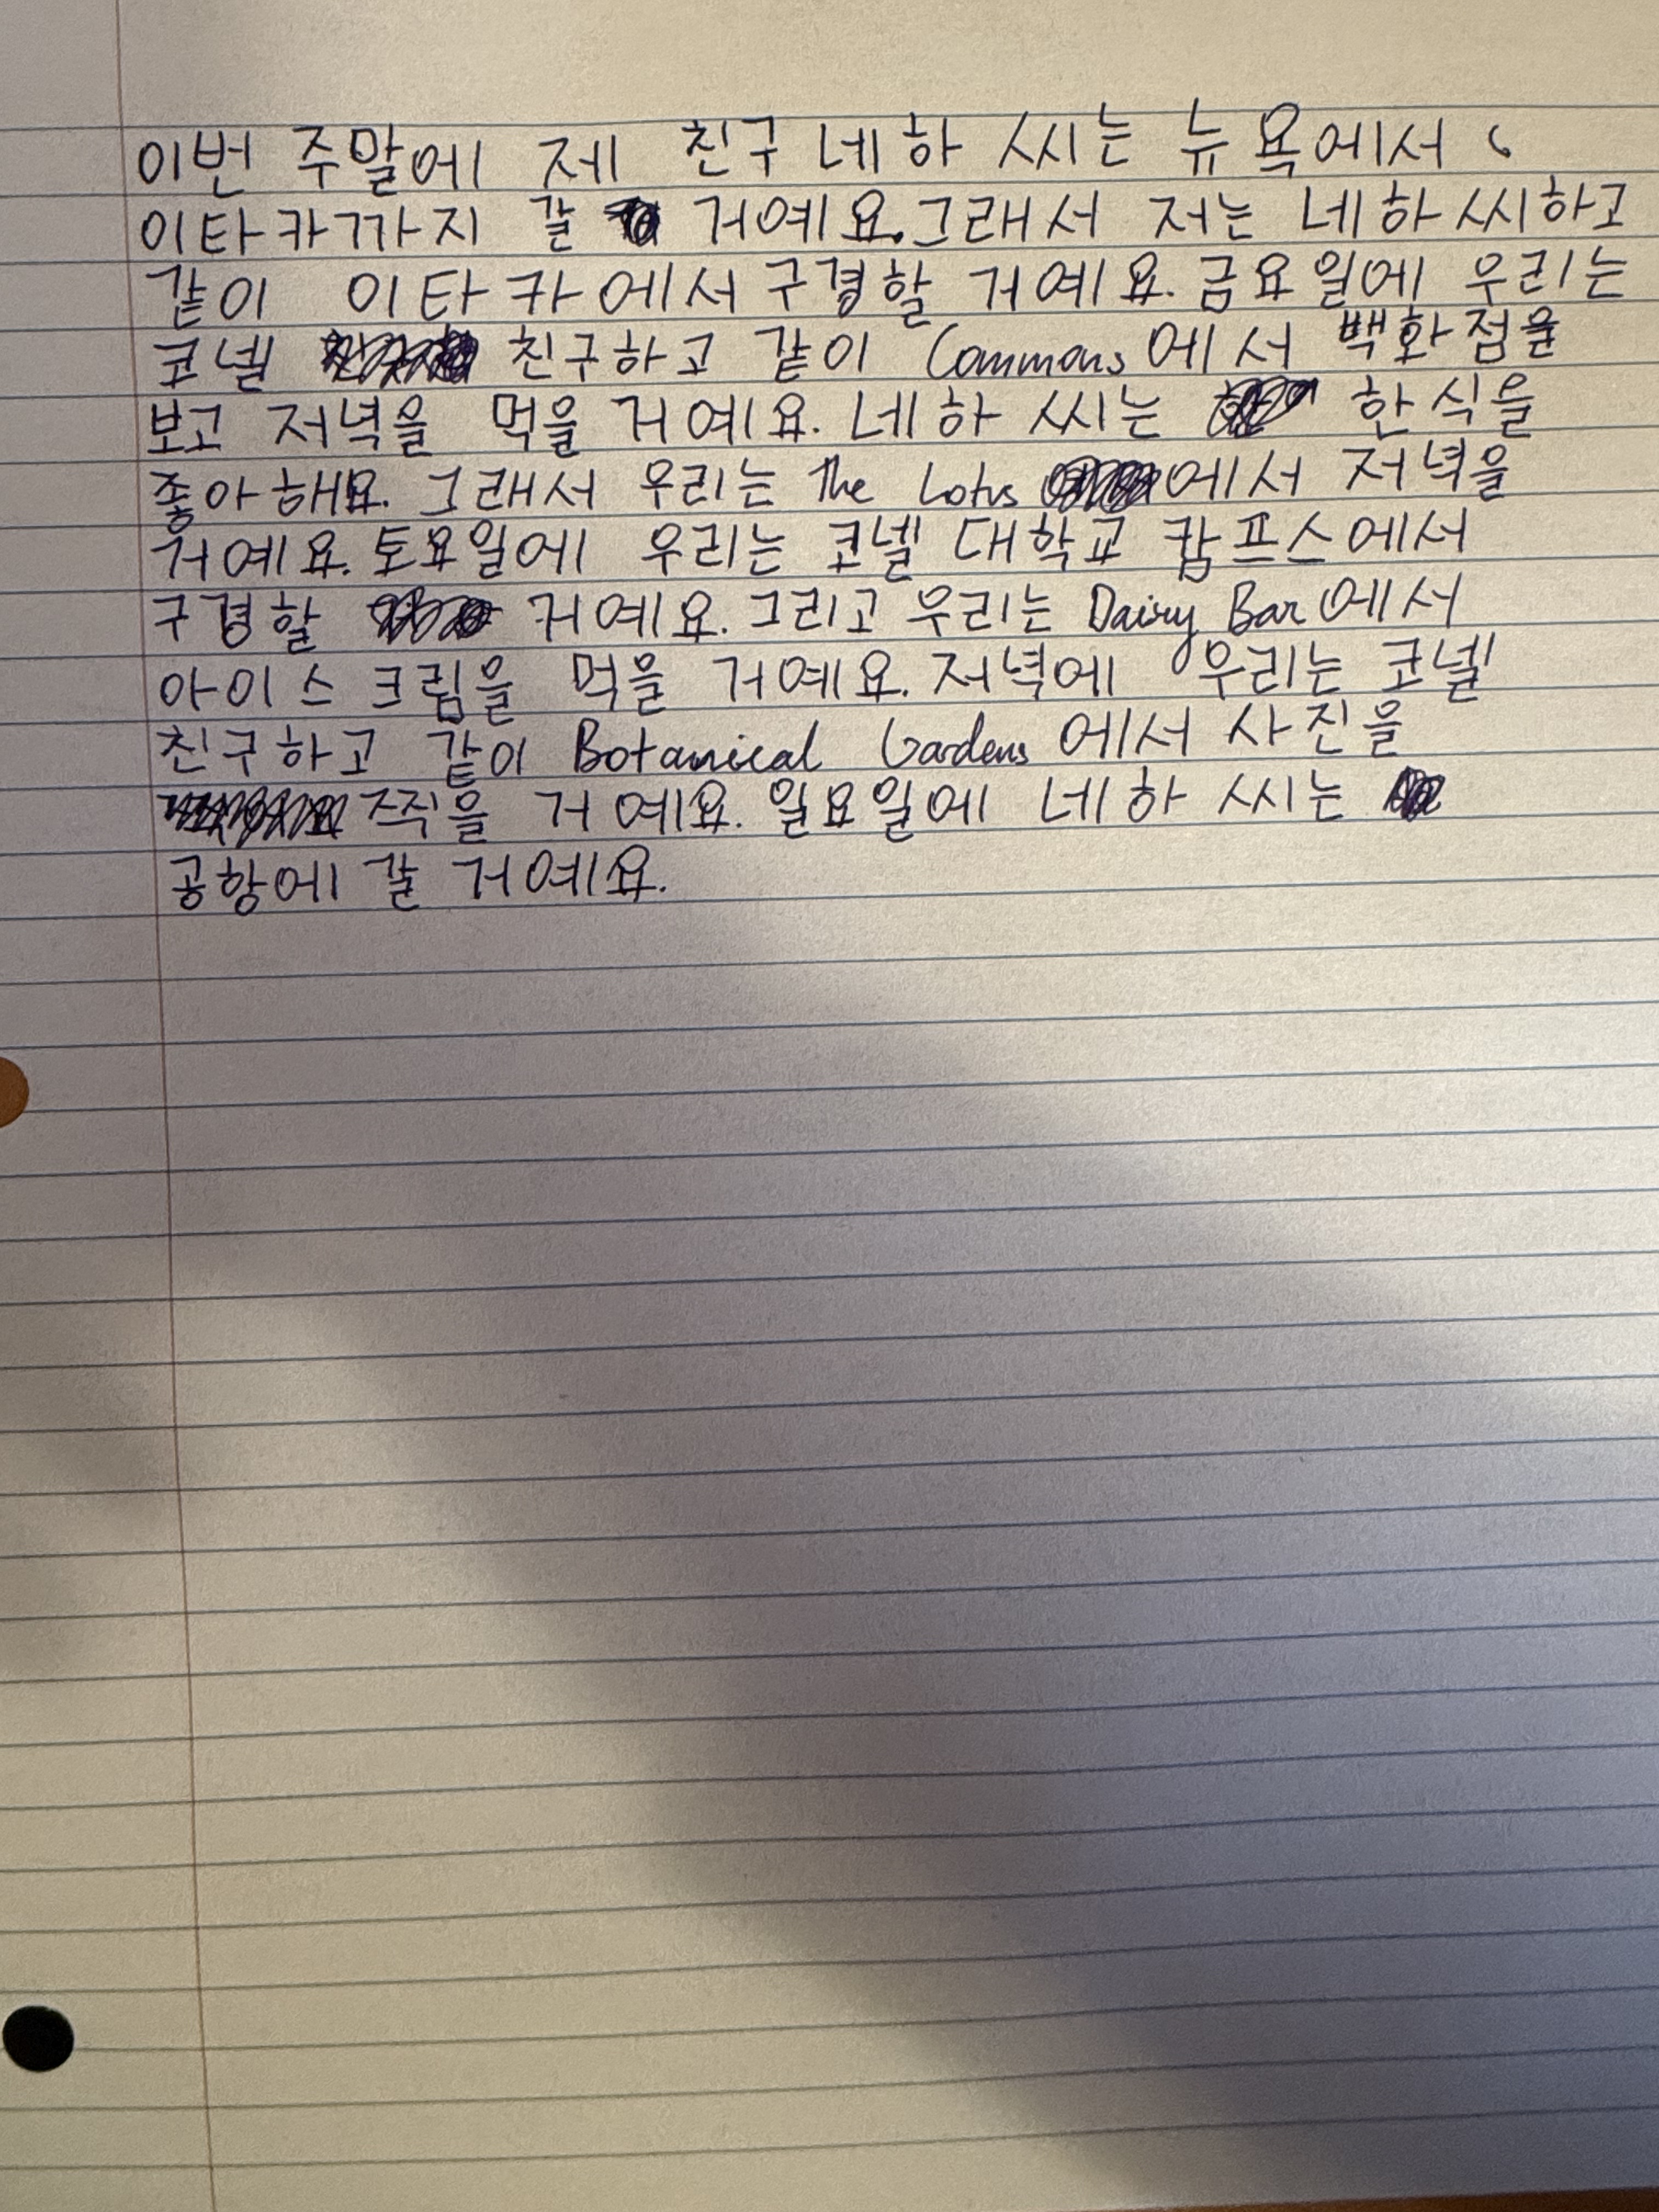 이번 주말에 제 친구 네하 씨는 뉴욕에서
이타카까지 갈 거예요. 그래서 저는 네하 씨하고
같이 이타카에서 구경할 거예요. 금요일에 우리는
코넬 친구하고 같이 Commons에서 백화점을
보고 저녁을 먹을 거예요. 네하 씨는 한식을
좋아해요. 그래서 우리는 The Lotus에서 저녁을
거예요. 토요일에 우리는 코넬 대학교 캄프스에서
구경할 거예요. 그리고 우리는 Dairy Bar에서
아이스크림을 먹을 거예요. 저녁에 우리는 코넬
친구하고 같이 Botanical Gardens에서 사진을
찍을 거예요. 일요일에 네하 씨는
공항에 갈 거예요.